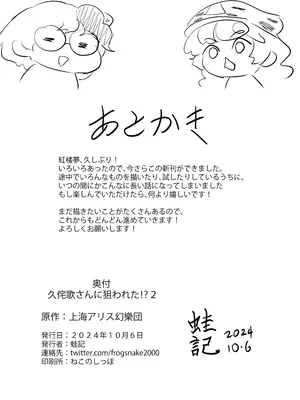 あとがき
紅楼夢、久しぶり！
いろいろあったので、今さらこの新刊ができました。
途中でいろんなものを描いたり、試したりしているうちに、
いつの間にかこんなに長い話になってしまいました
もし楽しんでいただけたら、何より嬉しいです！
まだ描きたいことがたくさんあるので、
これからもどんどん進めていきます！
よろしくお願いします！
奥付
久侘歌さんに狙われた!?２
原作：上海アリス幻樂団
発行日：２０２４年１０月６日
発行者：蛙記
連絡先：twitter.com/frogsnake2000
印刷所：ねこのしっぽ
蛙記
2024
10.6